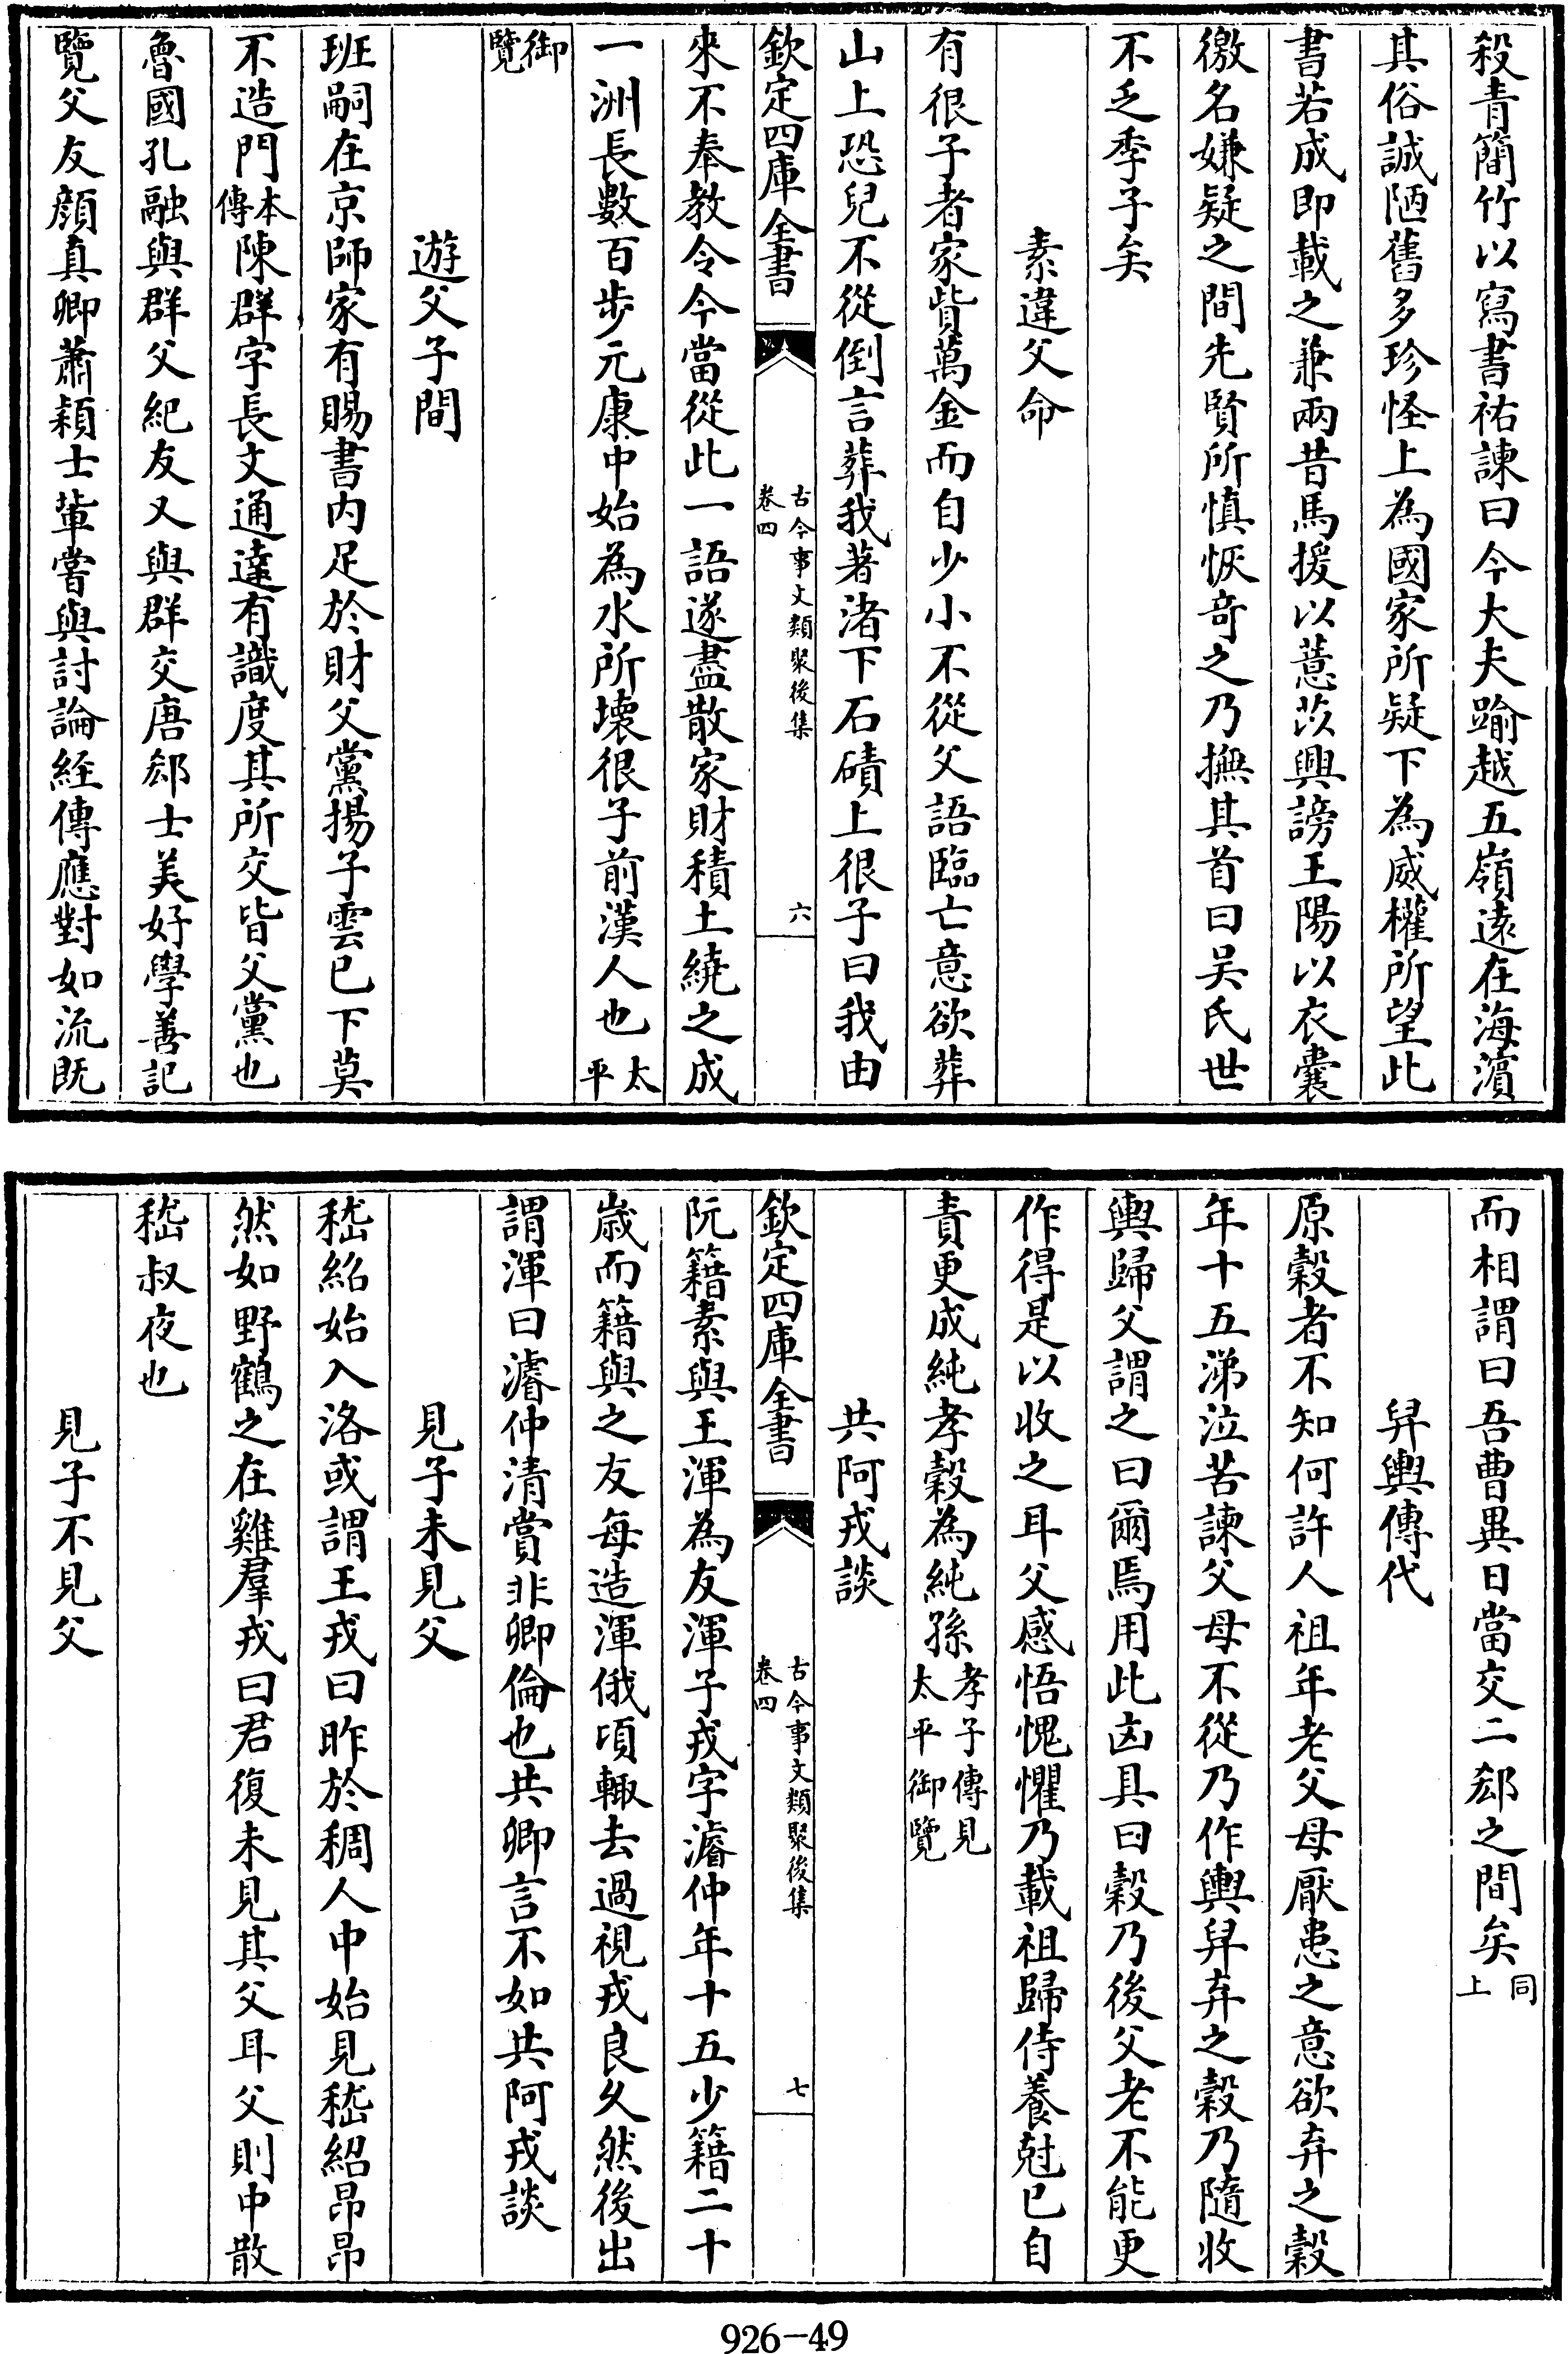 殺青簡竹以寫書祐諫曰今大夫踰越五嶺遠在海濵
其俗誠陋舊多珍怪上為國家所疑下為威權所望此
書若成即載之兼兩昔馬援以薏苡興謗王陽以衣囊
徼名嫌疑之間先賢所慎恢竒之乃撫其首曰吴氏世
不乏季子矣
素違父命
有很子者家貲萬金而自少小不從父語臨亡意欲葬
山上恐兒不從倒言葬我著渚下石磧上很子曰我由
欽定四庫全書
古今事文類聚後集
卷四
六
來不奉教令今當從此一語遂盡散家財積土繞之成
一洲長數百歩元康中始為水所壊很子前漢人也太平
御覽
遊父子間
班嗣在京師家有賜書内足於財父黨揚子雲已下莫
不造門本傳陳群字長文通達有識度其所交皆父黨也
魯國孔融與群父紀友又與群交唐郄士美好學善記
覽父友顔真卿蕭穎士軰嘗與討論經傳應對如流既
而相謂曰吾曹異日當交二郄之間矣同上
舁輿傳代
原穀者不知何許人祖年老父母厭患之意欲弃之穀
年十五涕泣苦諫父母不從乃作輿舁弃之穀乃隨收
輿歸父謂之曰爾焉用此凶具曰穀乃後父老不能更
作得是以收之耳父感悟愧懼乃載祖歸侍養尅已自
責更成純孝穀為純孫孝子傳見太平御覽
共阿戎談
欽定四庫全書
古今事文類聚後集
卷四
七
阮籍素與王渾為友渾子戎字濬仲年十五少籍二十
歳而籍與之友每造渾俄頃輙去過視戎良久然後出
謂渾曰濬仲清賞非卿倫也共卿言不如共阿戎談
見子未見父
嵇紹始入洛或謂王戎曰昨於稠人中始見嵇紹昂昂
然如野鶴之在雞羣戎曰君復未見其父耳父則中散
嵇叔夜也
見子不見父
926-49